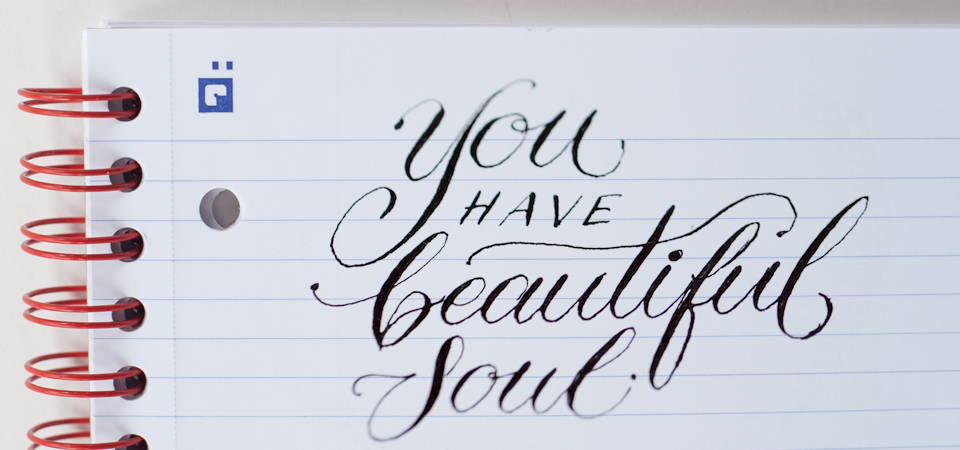 you
HAVE
beautiful
soul